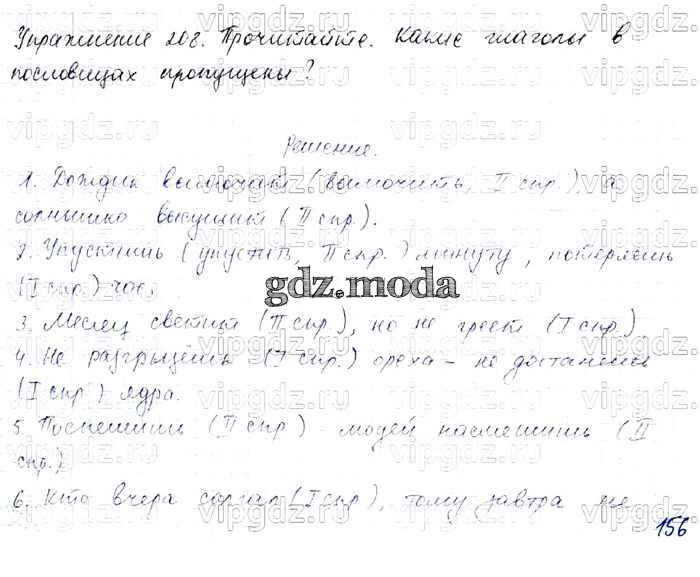 Упражнение 208. Прочитайте. Какие глаголы в
пословицах пропущены?
Решение.
1. Дождик вымочит (вымочить, II спр.), а
солнышко высушит (II спр.).
2. Упустишь (упустить, II спр.) минуту, потеряешь
(I спр.) час.
gdz.moda
3. Месяц светит (II спр.), но не греет (I спр.)
4. Не разгрызёшь (I спр.) ореха – не достанешь
(I спр.) ядра.
5. Поспешишь (II спр.) людей насмешишь (II
спр.)
6. Кто вчера солгал (I спр), тому завтра не
156
vipgdz.ru